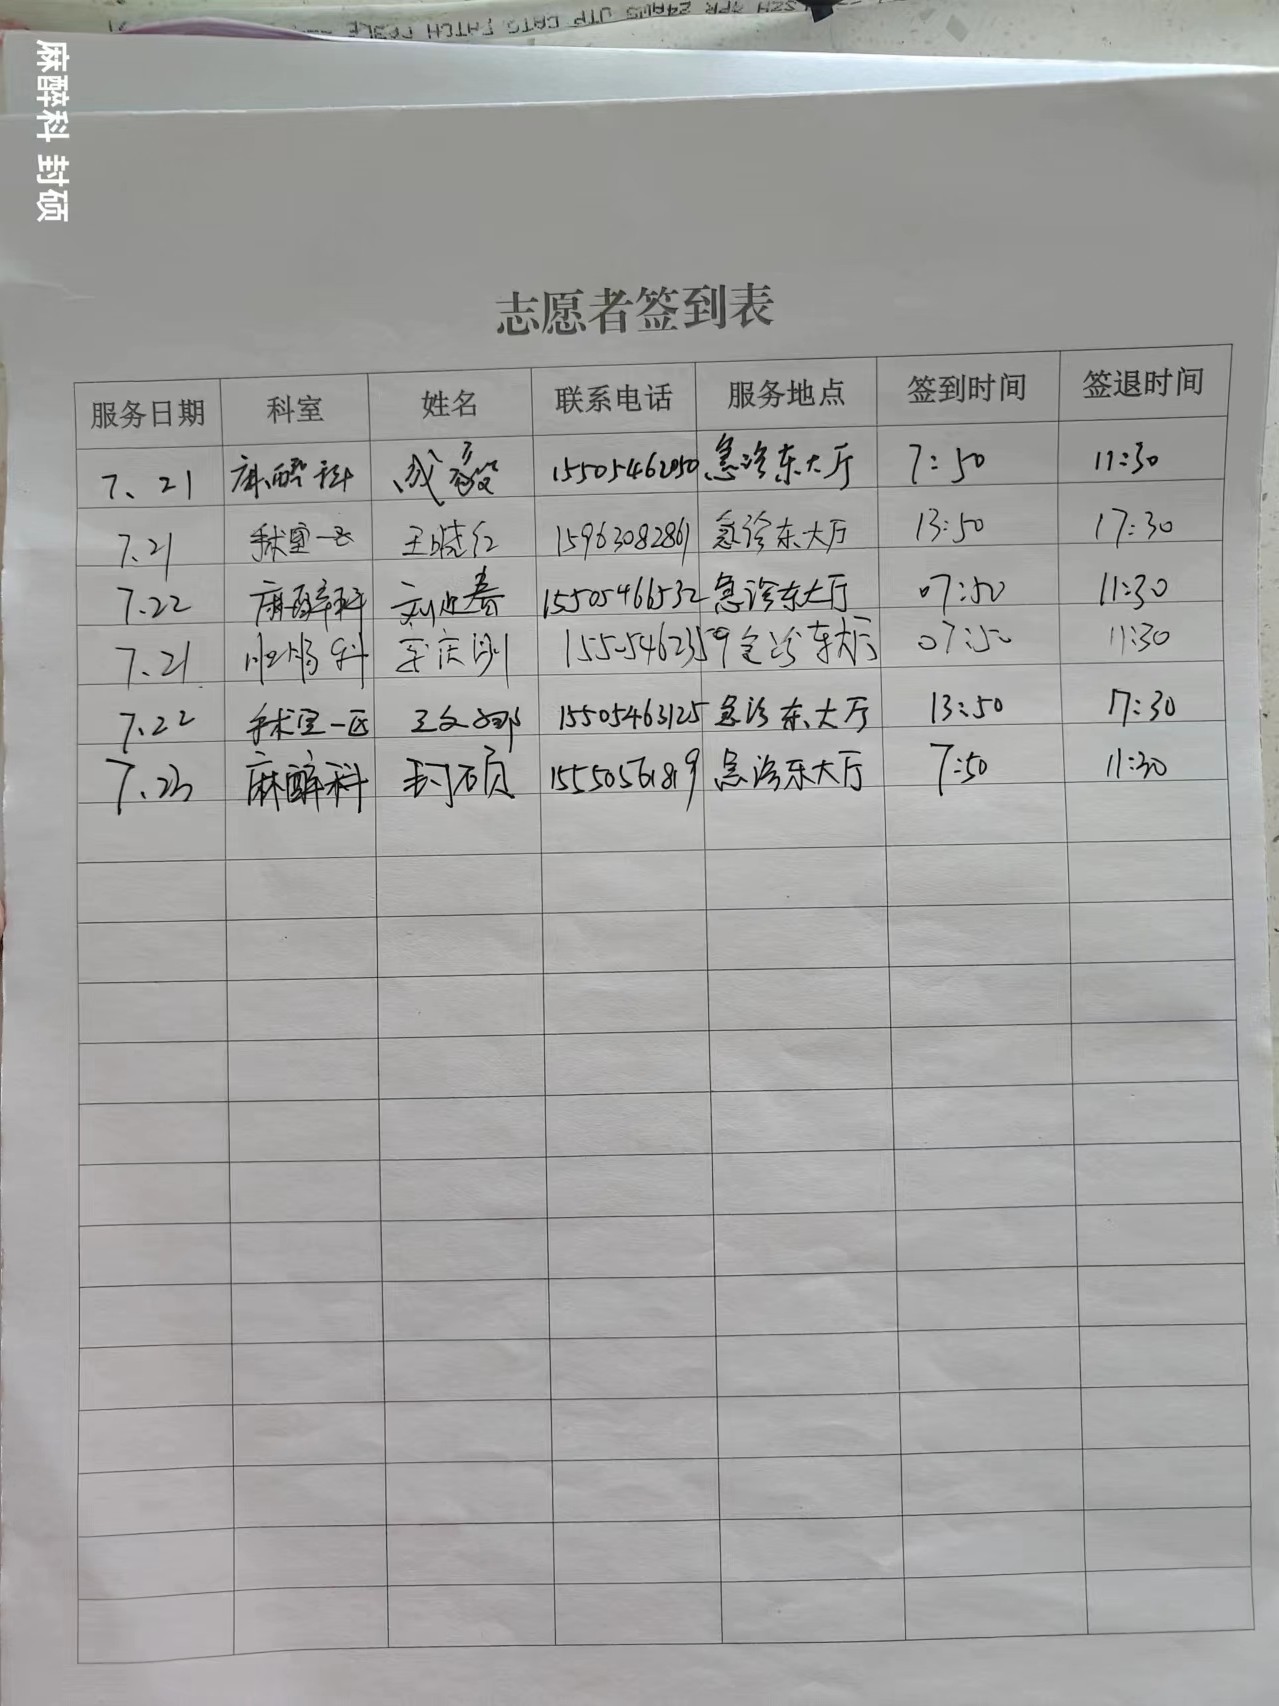 麻醉科 封硕
志愿者签到表
服务日期 科室 姓名 联系电话 服务地点 签到时间 签退时间
7.21 麻醉科 成毅 15505462050 急诊东大厅 7:50 11:30
7.21 手术室一区 王晓红 15963082861 急诊东大厅 13:50 17:30
7.22 麻醉科 刘迎春 15505466532 急诊东大厅 07:50 11:30
7.21 肛肠科 李庆 15505462359 急诊东大厅 07:50 11:30
7.22 手术室一区 王文娜 15505463125 急诊东大厅 13:50 17:30
7.23 麻醉科 封硕 15550561819 急诊东大厅 7:50 11:30